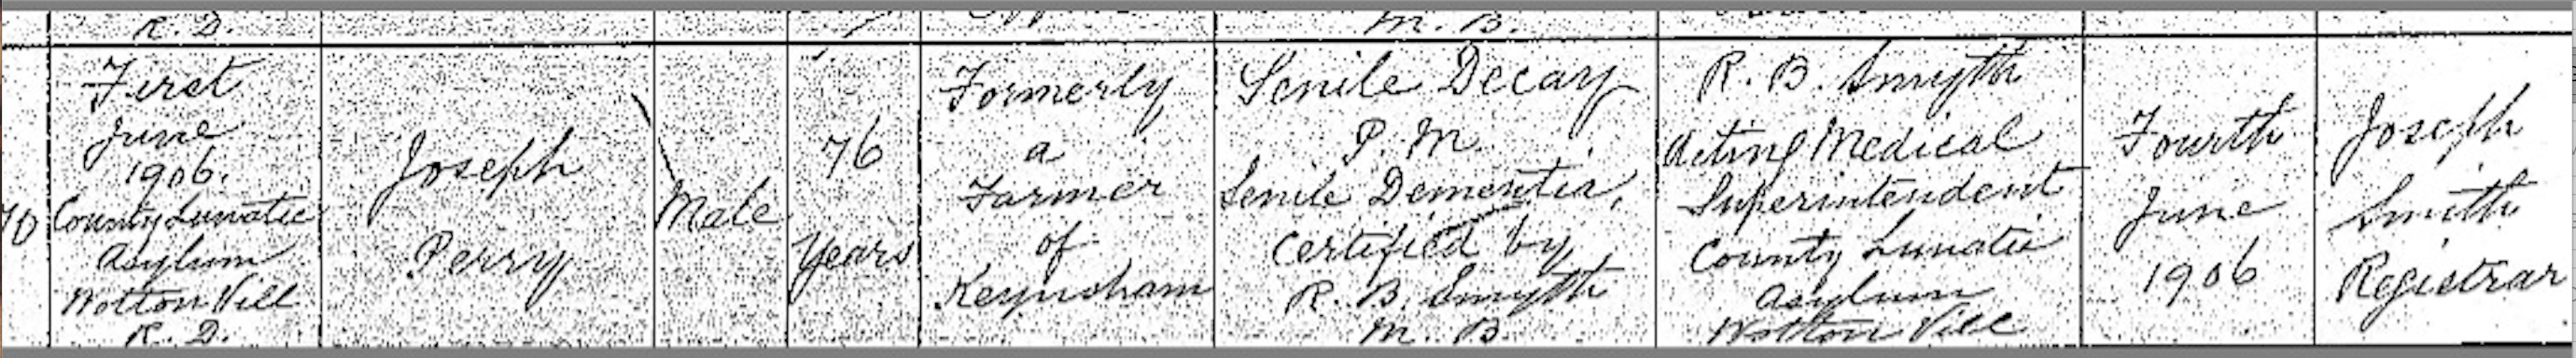 R. D.
M. B.
First
June
1906.
County Lunatic
Asylum
Wotton Vill
R. D.
Joseph
Perry
Male
76
Years
Formerly
a
Farmer
of
Keynsham
Senile Decay
P. M.
Senile Dementia,
Certified by
R. B. Smyth
M. B.
R. B. Smyth
Acting Medical
Superintendent
County Lunatic
Asylum
Wotton Vill
Fourth
June
1906
Joseph
Smith
Registrar